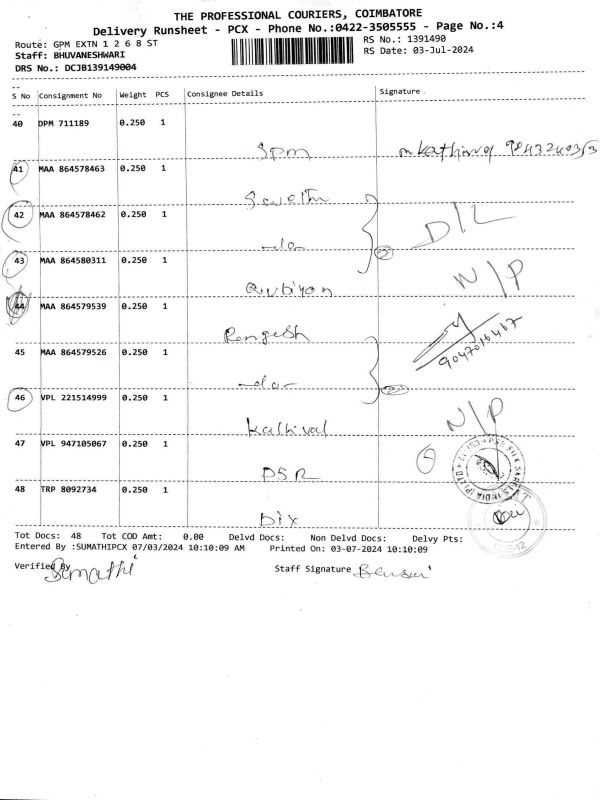 THE PROFESSIONAL COURIERS, COIMBATORE
Delivery Runsheet - PCX - Phone No.:0422-3505555 - Page No.:4
Route: GPM EXTN 1 2 6 8 ST
RS No.: 1391490
Staff: BHUVANESHWARI
RS Date: 03-Jul-2024
DRS No.: DCJB139149004
S No Consignment No Weight PCS Consignee Details Signature
40 DPM 711189 0.250 1
Spm
41 MAA 864578463 0.250 1
42 MAA 864578462 0.250 1
D/L
-do-
2
43 MAA 864580311 0.250 1
N/P
44 MAA 864579539 0.250 1
Rengesh
9047016467
45 MAA 864579526 0.250 1
-do-
46 VPL 221514999 0.250 1
N/P
47 VPL 947105067 0.250 1
PSR
48 TRP 8092734 0.250 1
Dix
Tot Docs: 48 Tot COD Amt: 0.00 Delvd Docs: Non Delvd Docs: Delvy Pts:
Entered By :SUMATHIPCX 07/03/2024 10:10:09 AM Printed On: 03-07-2024 10:10:09
Verified By Sumathi
Staff Signature